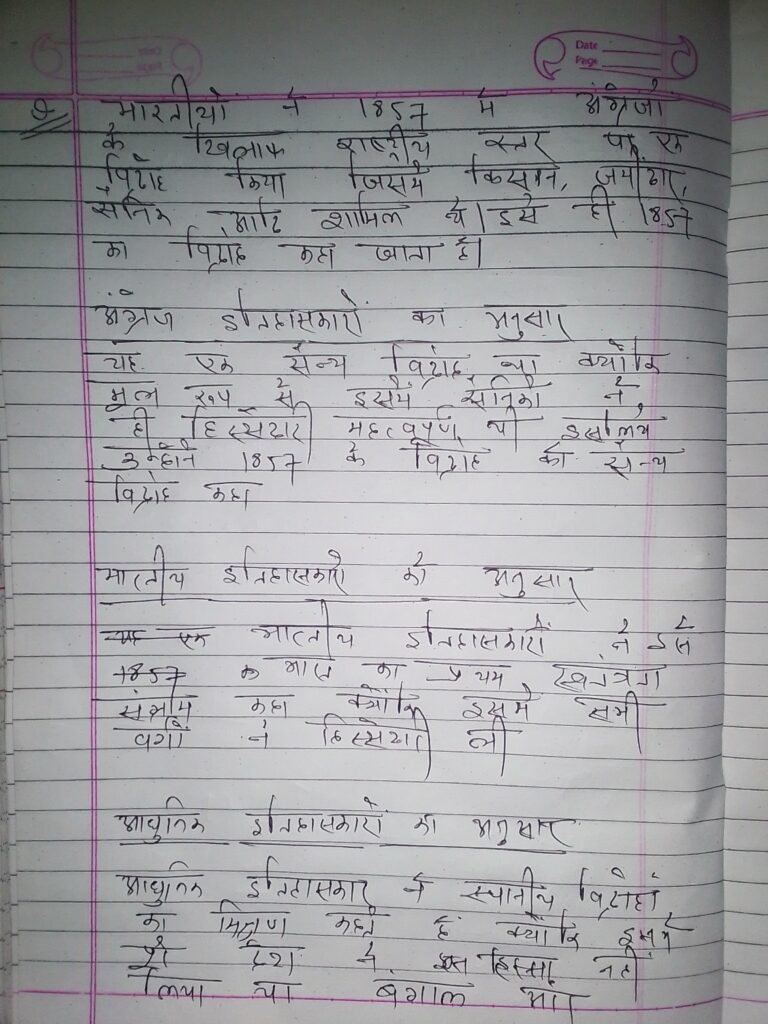 Date
Page
भारतीयों ने 1857 में अंग्रेजों
के खिलाफ राष्ट्रीय स्तर पर एक
विद्रोह किया जिसमें किसान, जमींदार,
सैनिक आदि शामिल थे। इसे ही 1857
का विद्रोह कहा जाता है।
अंग्रेज इतिहासकारों का अनुसार
यह एक सैन्य विद्रोह था क्योंकि
मूल रूप से इसमें सैनिकों ने
ही हिस्सेदारी महत्वपूर्ण थी इसलिये
उन्होंने 1857 के विद्रोह को सैन्य
विद्रोह कहा
भारतीय इतिहासकारों के अनुसार
यह एक भारतीय इतिहासकारों ने इसे
1857 के भारत का प्रथम स्वतंत्रता
संग्राम कहा क्योंकि इसमें सभी
वर्गों ने हिस्सेदारी ली
आधुनिक इतिहासकारों का अनुसार
आधुनिक इतिहासकार ने स्थानीय विद्रोहों
का मिश्रण कहते हैं क्योंकि इसमें
पूरे देश ने हिस्सा नहीं
लिया था बंगाल और